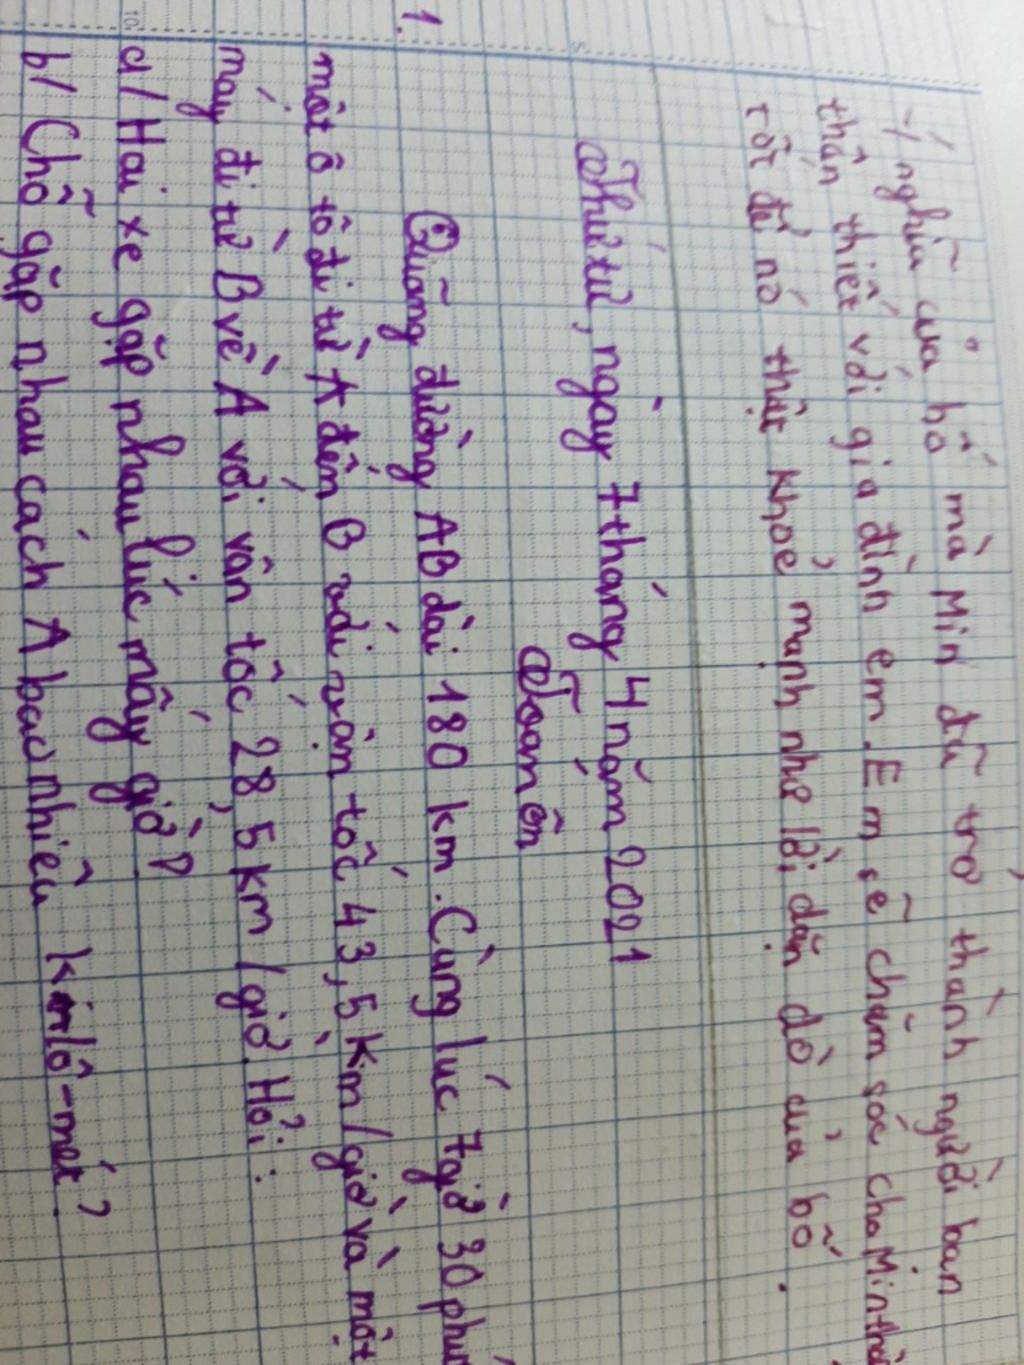 ý nghĩa của bố mà Min đã trở thành người bạn
thân thiết với gia đình em. Em sẽ chăm sóc cho Min thật
tốt để nó thật khoẻ mạnh như lời dặn dò của bố.
Thứ tư, ngày 7 tháng 4 năm 2021
Toán ôn
1. Quãng đường AB dài 180 km. Cùng lúc 7 giờ 30 phút
một ô tô đi từ A đến B với vận tốc 43,5 km/giờ và một
máy đi từ B về A với vân tốc 28,5 km/giờ. Hỏi:
a/ Hai xe gặp nhau lúc mấy giờ?
b/ Chỗ gặp nhau cách A bao nhiêu ki-lô-mét?